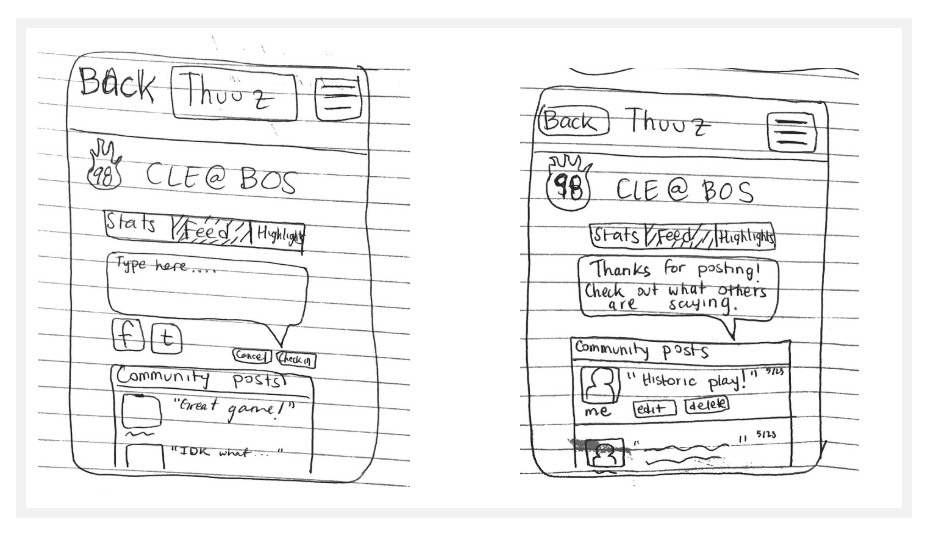 Back Thuuz
98 CLE @ BOS
Stats Feed Highlights
Type here....
f t
Cancel Check in
Community posts
"Great game!"
"IDK what... "
Back Thuuz
98 CLE @ BOS
Stats Feed Highlights
Thanks for posting!
Check out what others
are saying.
Community posts
"Historic play!" 5/23
me edit delete
" " 5/23